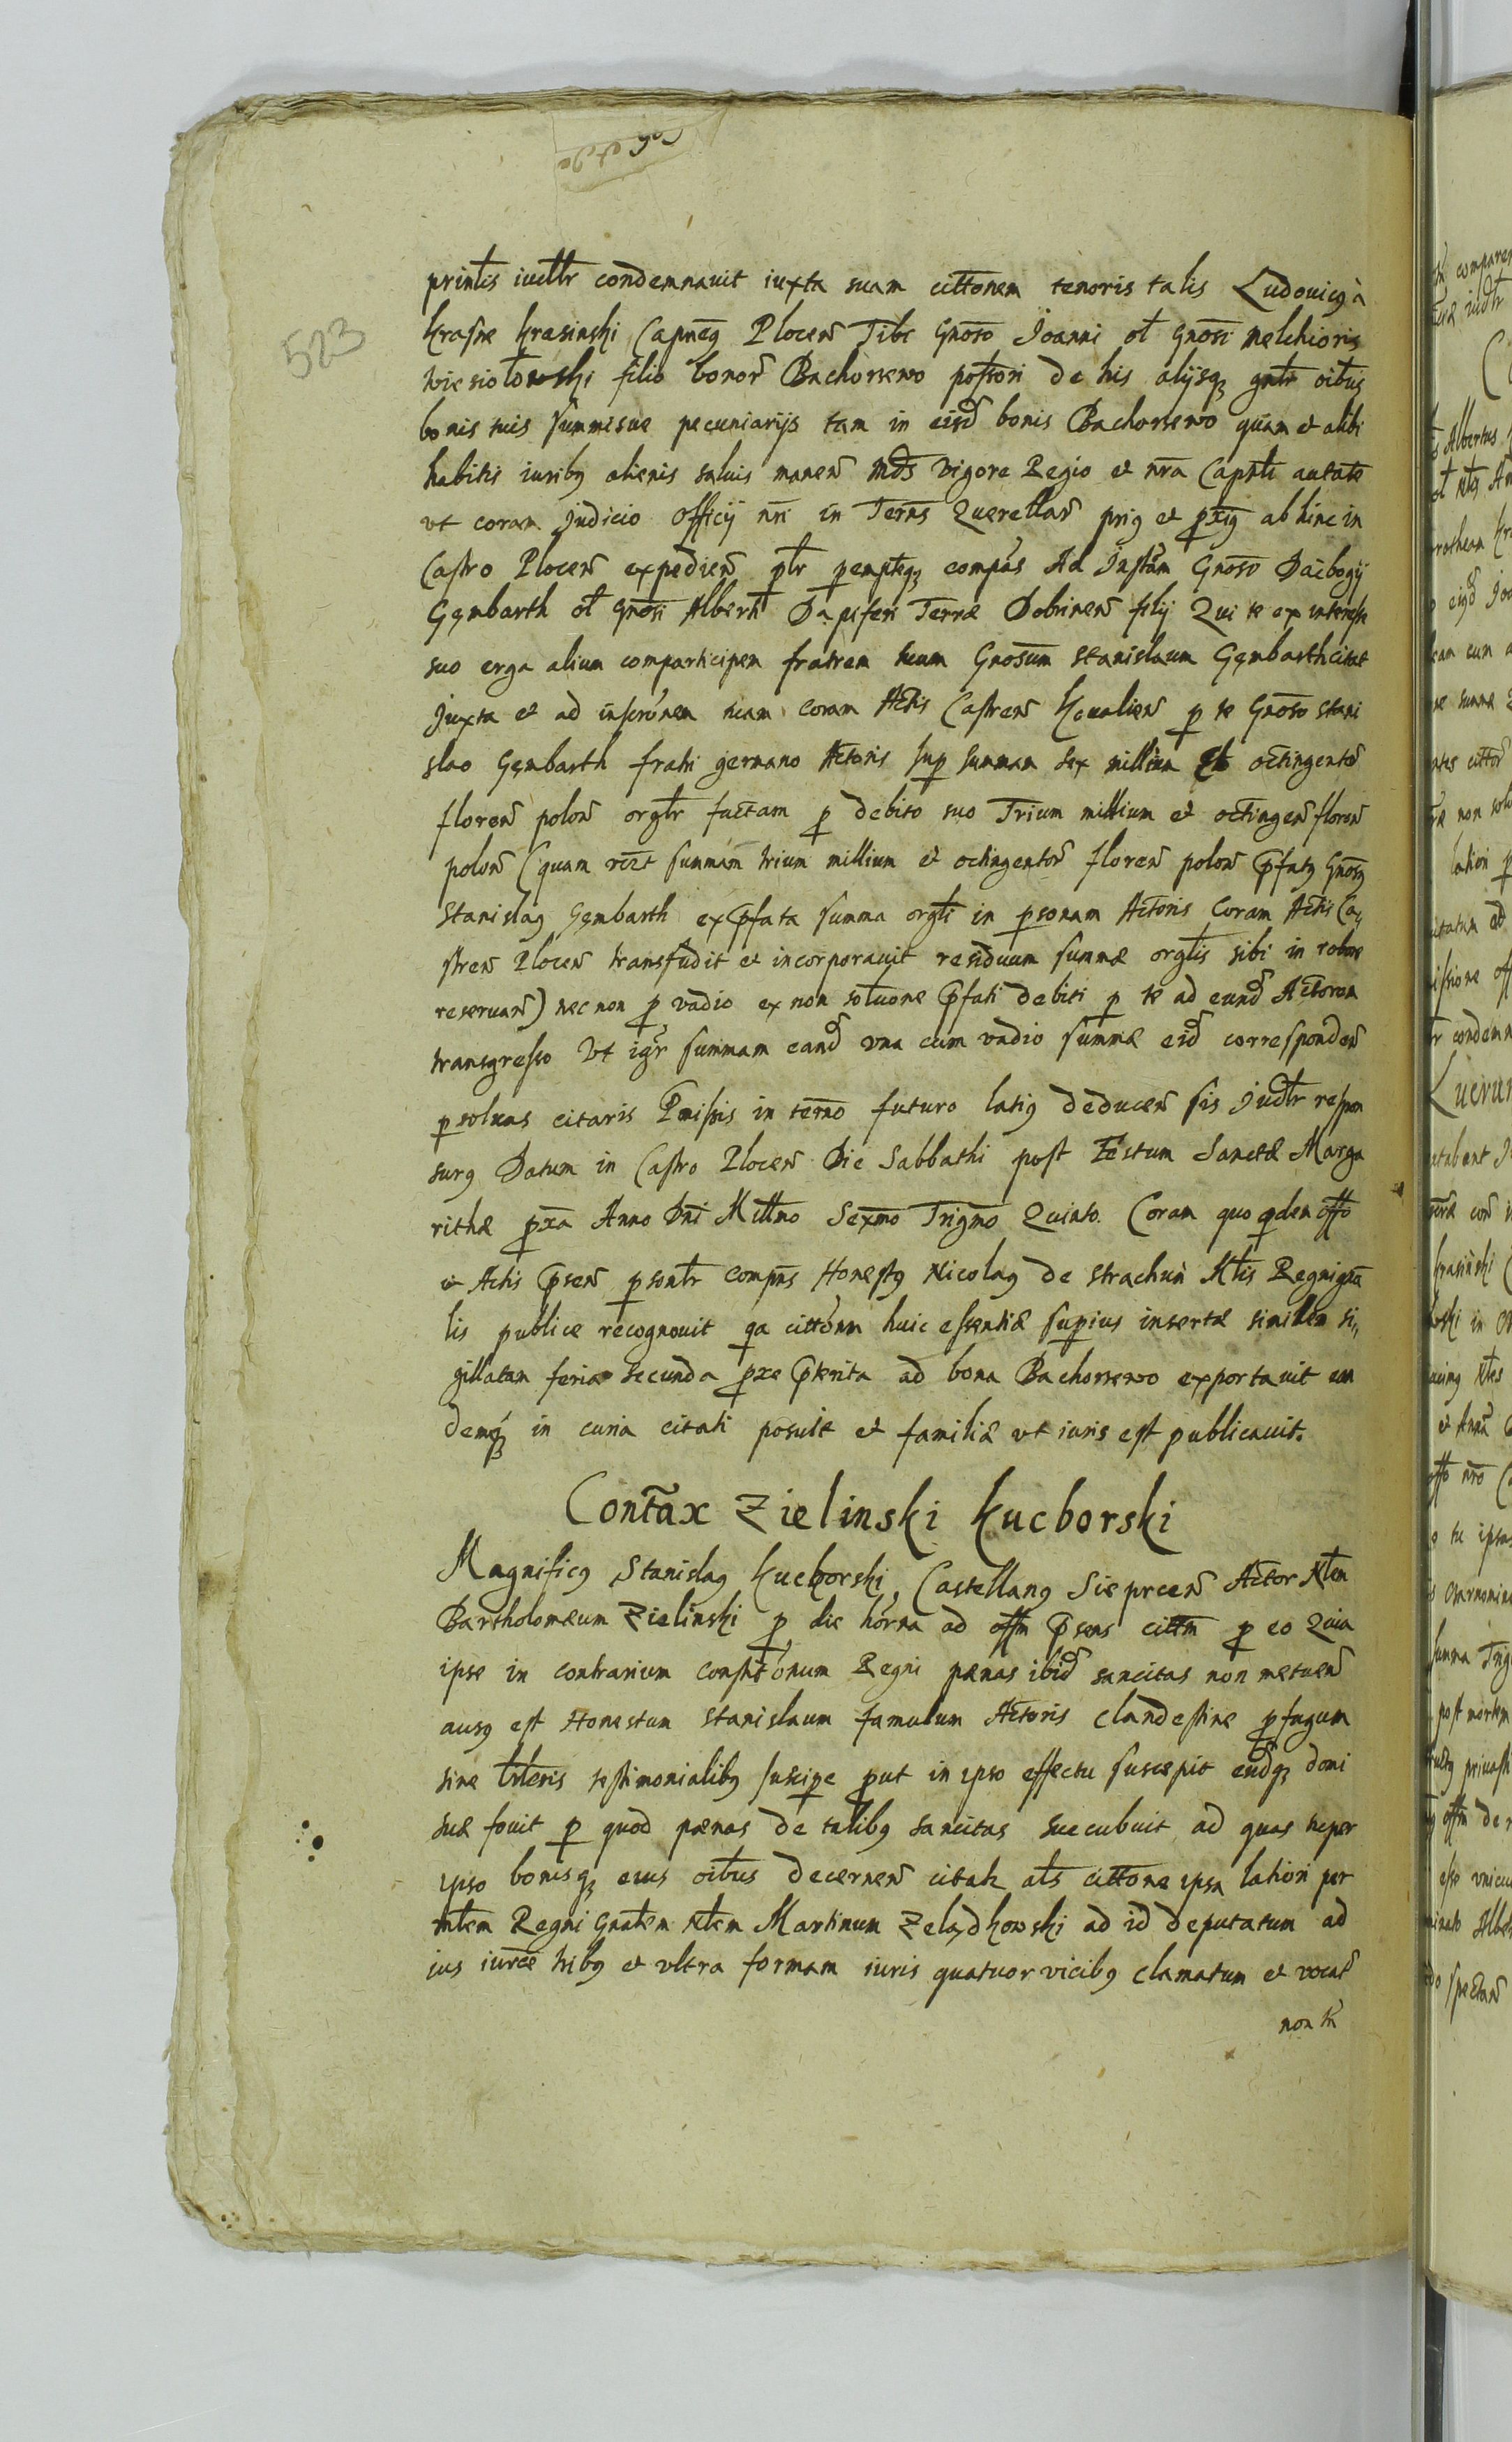 523
printis iudtr condemnauit iuxta suam cittonem tenoris talis Ludouicus à
Krasne Krasinski Capneus Plocen Tibi Gnoso Joanni ol Gnosi Melchioris
Wiesiołowski filio bonor Bachorzewo possori de his alijsq gntr oibus
bonis tuis summisue pecuniarijs tam in eisd bonis Bachorzewo quam et alibi
habitis iuribus alienis saluis manen Mds vigore Regio et nra Capnli autate
vt coram Judicio Officij nri in Terns Querellar prius et pxius ab hinc in
Castro Plocen expedien ptr pemptequs compas Ad Instam Gnoso Daibogij
Gęmbarth ol Gnosi Alberti Dapiferi Terræ Dobrinen filij Qui te ex interesse
suo erga alium comparticipem fratrem suum Gnosum Stanislaum Gęmbarth citat
Juxta et ad inscronem tuam coram Actis Castren Kcoualien p te Gnoso Stani
slao Gęmbarth fratri germano Actoris sup summam sex millium et octingentor
floren polon orgltr factam p debito suo Trium millium et octingen floren
polon (quam rczt summam trium millium et octingentor floren polon Pfatus Gnosus
Stanislaus Gembarth ex Pfata summa orgli in psonam Actoris Coram Actis Ca,
stren Plocen transfudit et incorporauit residuum summæ orglis sibi in robore
reseruan) nec non p vadio ex non solutione Pfati debiti p te ad eund Actorem
transgresso Vt igr summam eand vna cum vadio summæ eid corresponden
psoluas citaris Pmissis in terno futuro latius deducen sis Judtr respon
surus Datum in Castro Plocen Die Sabbathi post Festum Sanctæ Marga
rithæ pxa Anno Dni Millmo Sexmo Trigmo Quinto. Coram quo qdem offo
et Actis Psen psonltr compns Honestus Nicolaus de Strachun Mtis Regni gna
lis publice recognouit qa cittonem huic essentiæ supius insertæ similem si,
gillatam feria secunda pxe Pterita ad bona Bachorzewo exportauit ean
demq in curia citati posuit et familiæ vt iuris est publicauit.
Contax Zielinski Kucborski
Magnificus Stanislaus Kucborski, Castellanus Sieprcen Actor Nlem
Bartholomæum Zielinski p die horna ad offm Psens cittm p eo Quia
ipse in contrarium constitonum Regni pænas ibid sancitas non metuen
ausus est Honestum Stanislaum famulum Actoris clandestine pfugum
sine lrteris testimonialibus suscipe put in ipso effectu suscepit eudq domi
suæ fouit p quod pænas de talibus sancitas succubuit ad quas super
ipso bonisq eius oibus decernen citat als cittone ipsa latiori per
mtem Regni Gnalem Nlem Martinum Zelazdkowski ad id deputatum ad
ius iurce tribus et vltra formam iuris quatuor vicibus clamatum et vocat
non tn